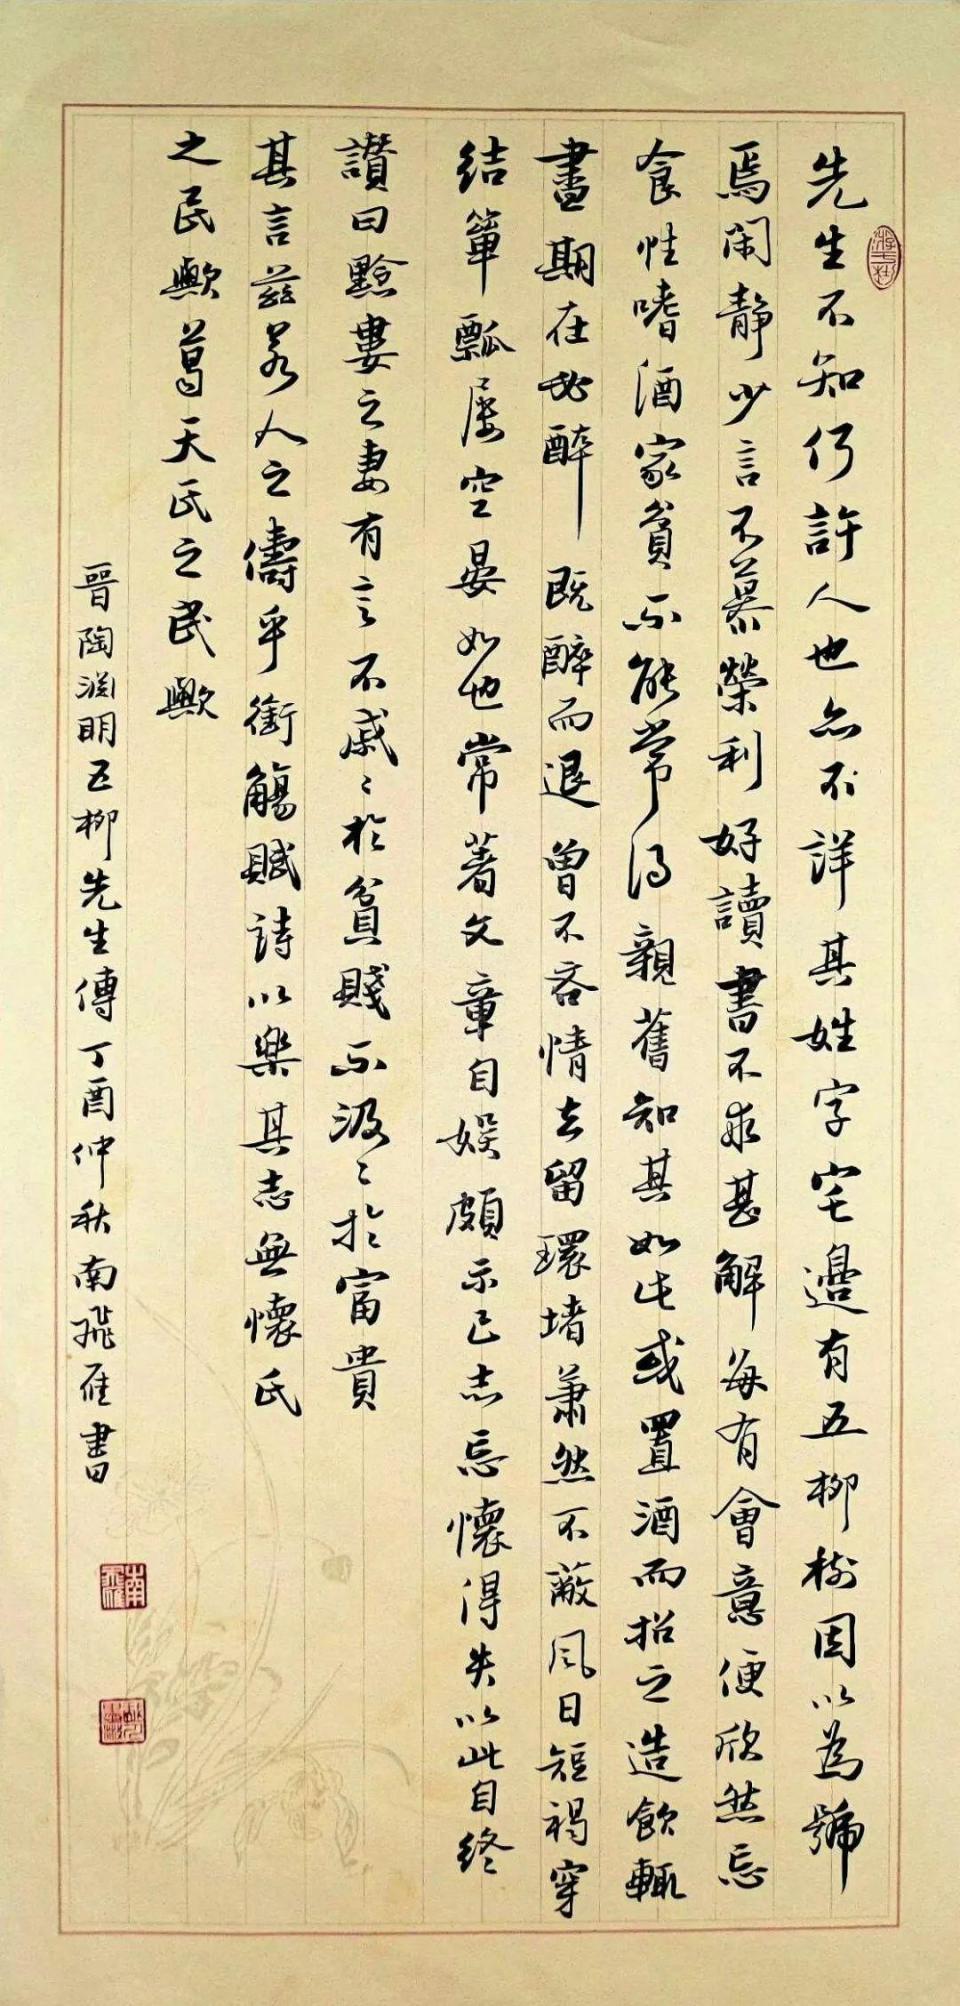 先生不知何許人也亦不詳其姓字宅邊有五柳樹因以為號
焉閑靜少言不慕榮利好讀書不求甚解每有會意便欣然忘
食性嗜酒家貧不能常得親舊知其如此或置酒而招之造飲輒
盡期在必醉既醉而退曾不吝情去留環堵蕭然不蔽風日短褐穿
結簞瓢屢空晏如也常著文章自娛頗示己志忘懷得失以此自終
讚曰黔婁之妻有言不戚〻於貧賤不汲〻於富貴
其言茲若人之儔乎銜觴賦詩以樂其志無懷氏
之民歟葛天氏之民歟
晉陶淵明五柳先生傳丁酉仲秋南飛雁書